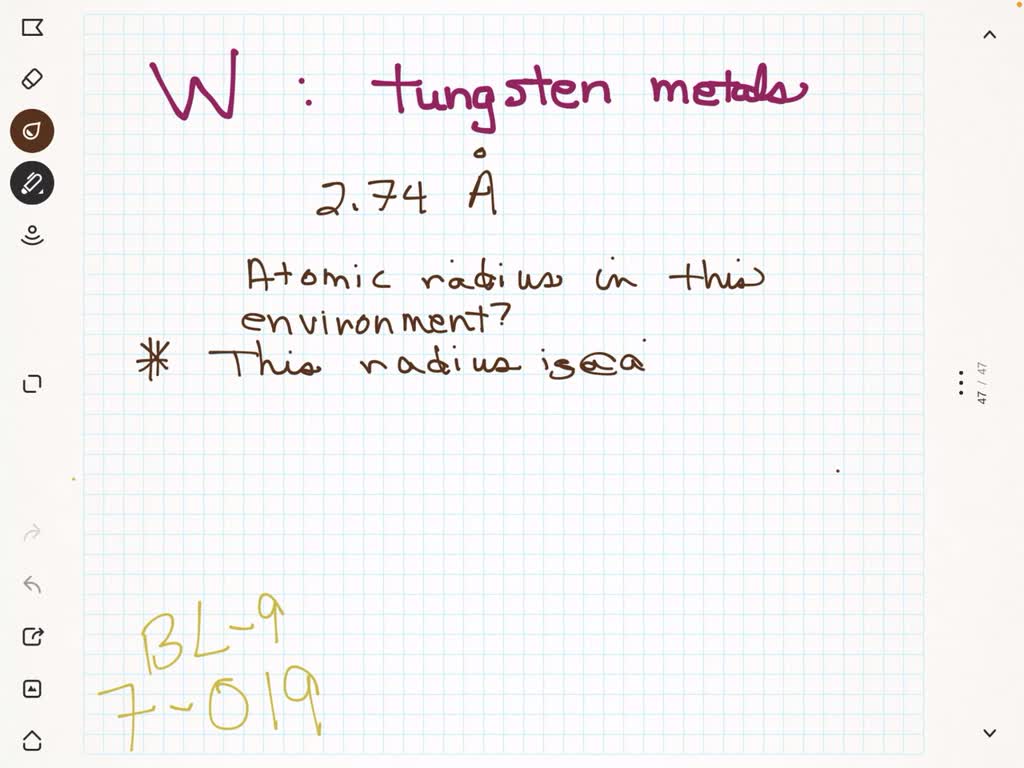 W : tungsten metals
2.74 Å
Atomic radius in this
environment?
* This radius is a
47 / 47
BL-9
7-019